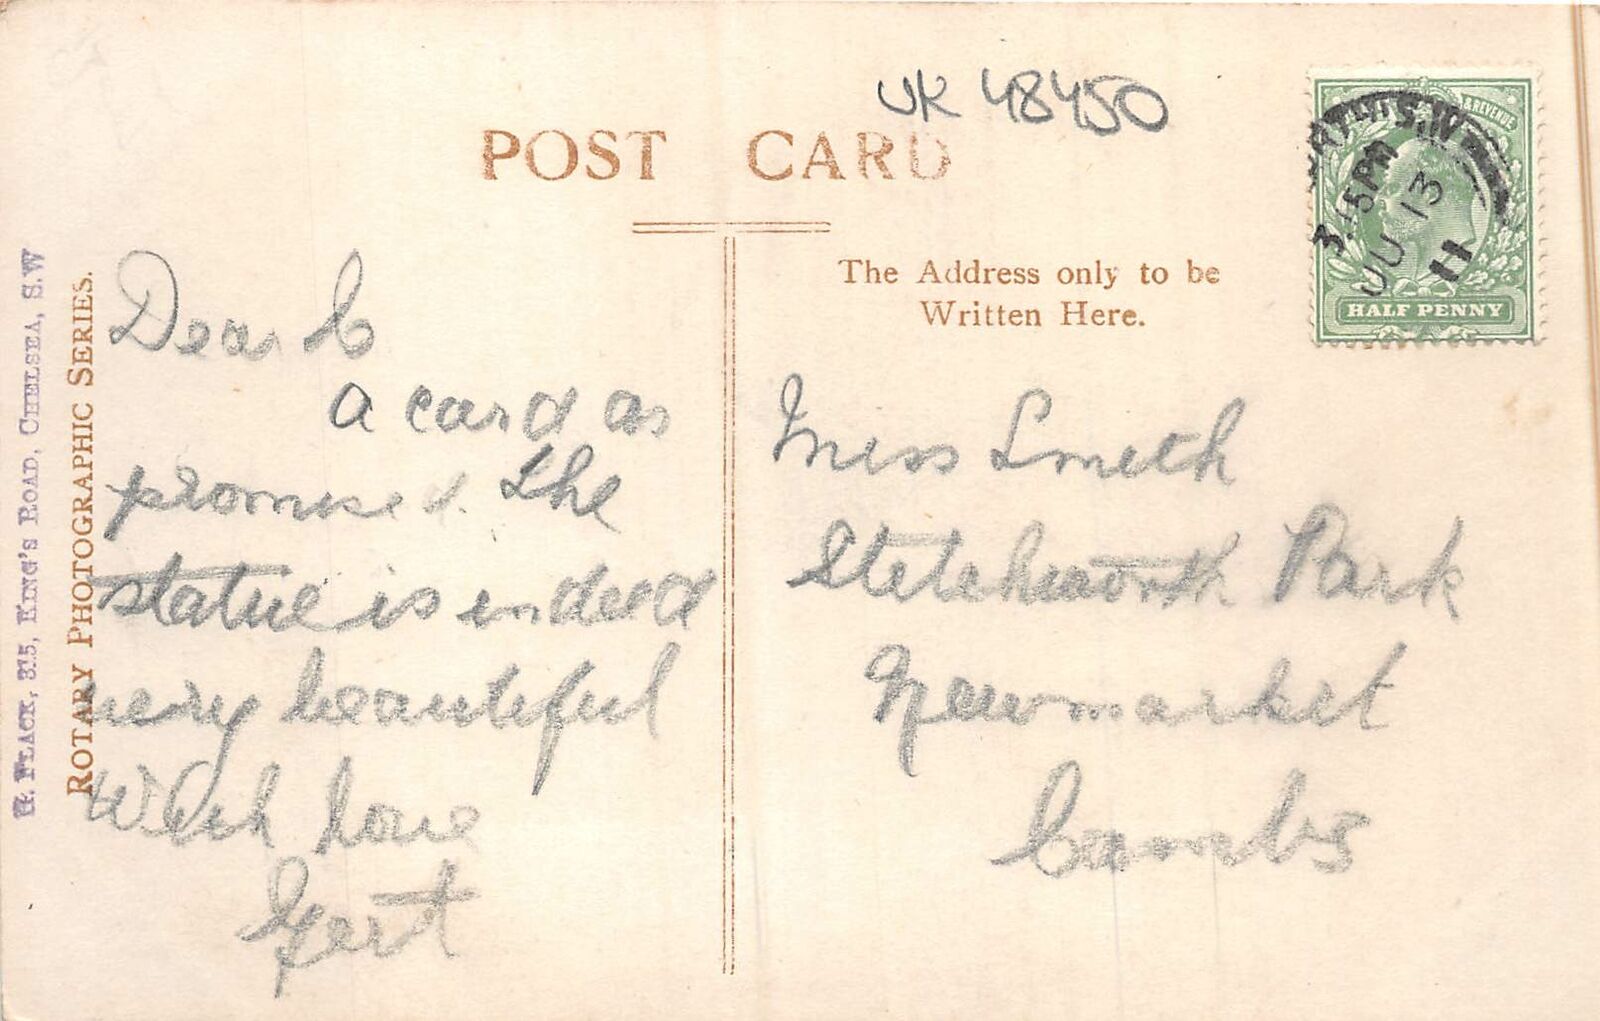 UK 48450
POST CARD
The Address only to be
Written Here.
& REVENUE
S.W
3.15PM
JU 13
11
HALF PENNY
H. FLACK, 315, KING'S ROAD, CHELSEA, S.W
ROTARY PHOTOGRAPHIC SERIES.
Dear C
a card as
promised. The
statue is indeed
very beautiful
With love
Gert
Miss Smith
Stetchworth Park
Newmarket
Cambs